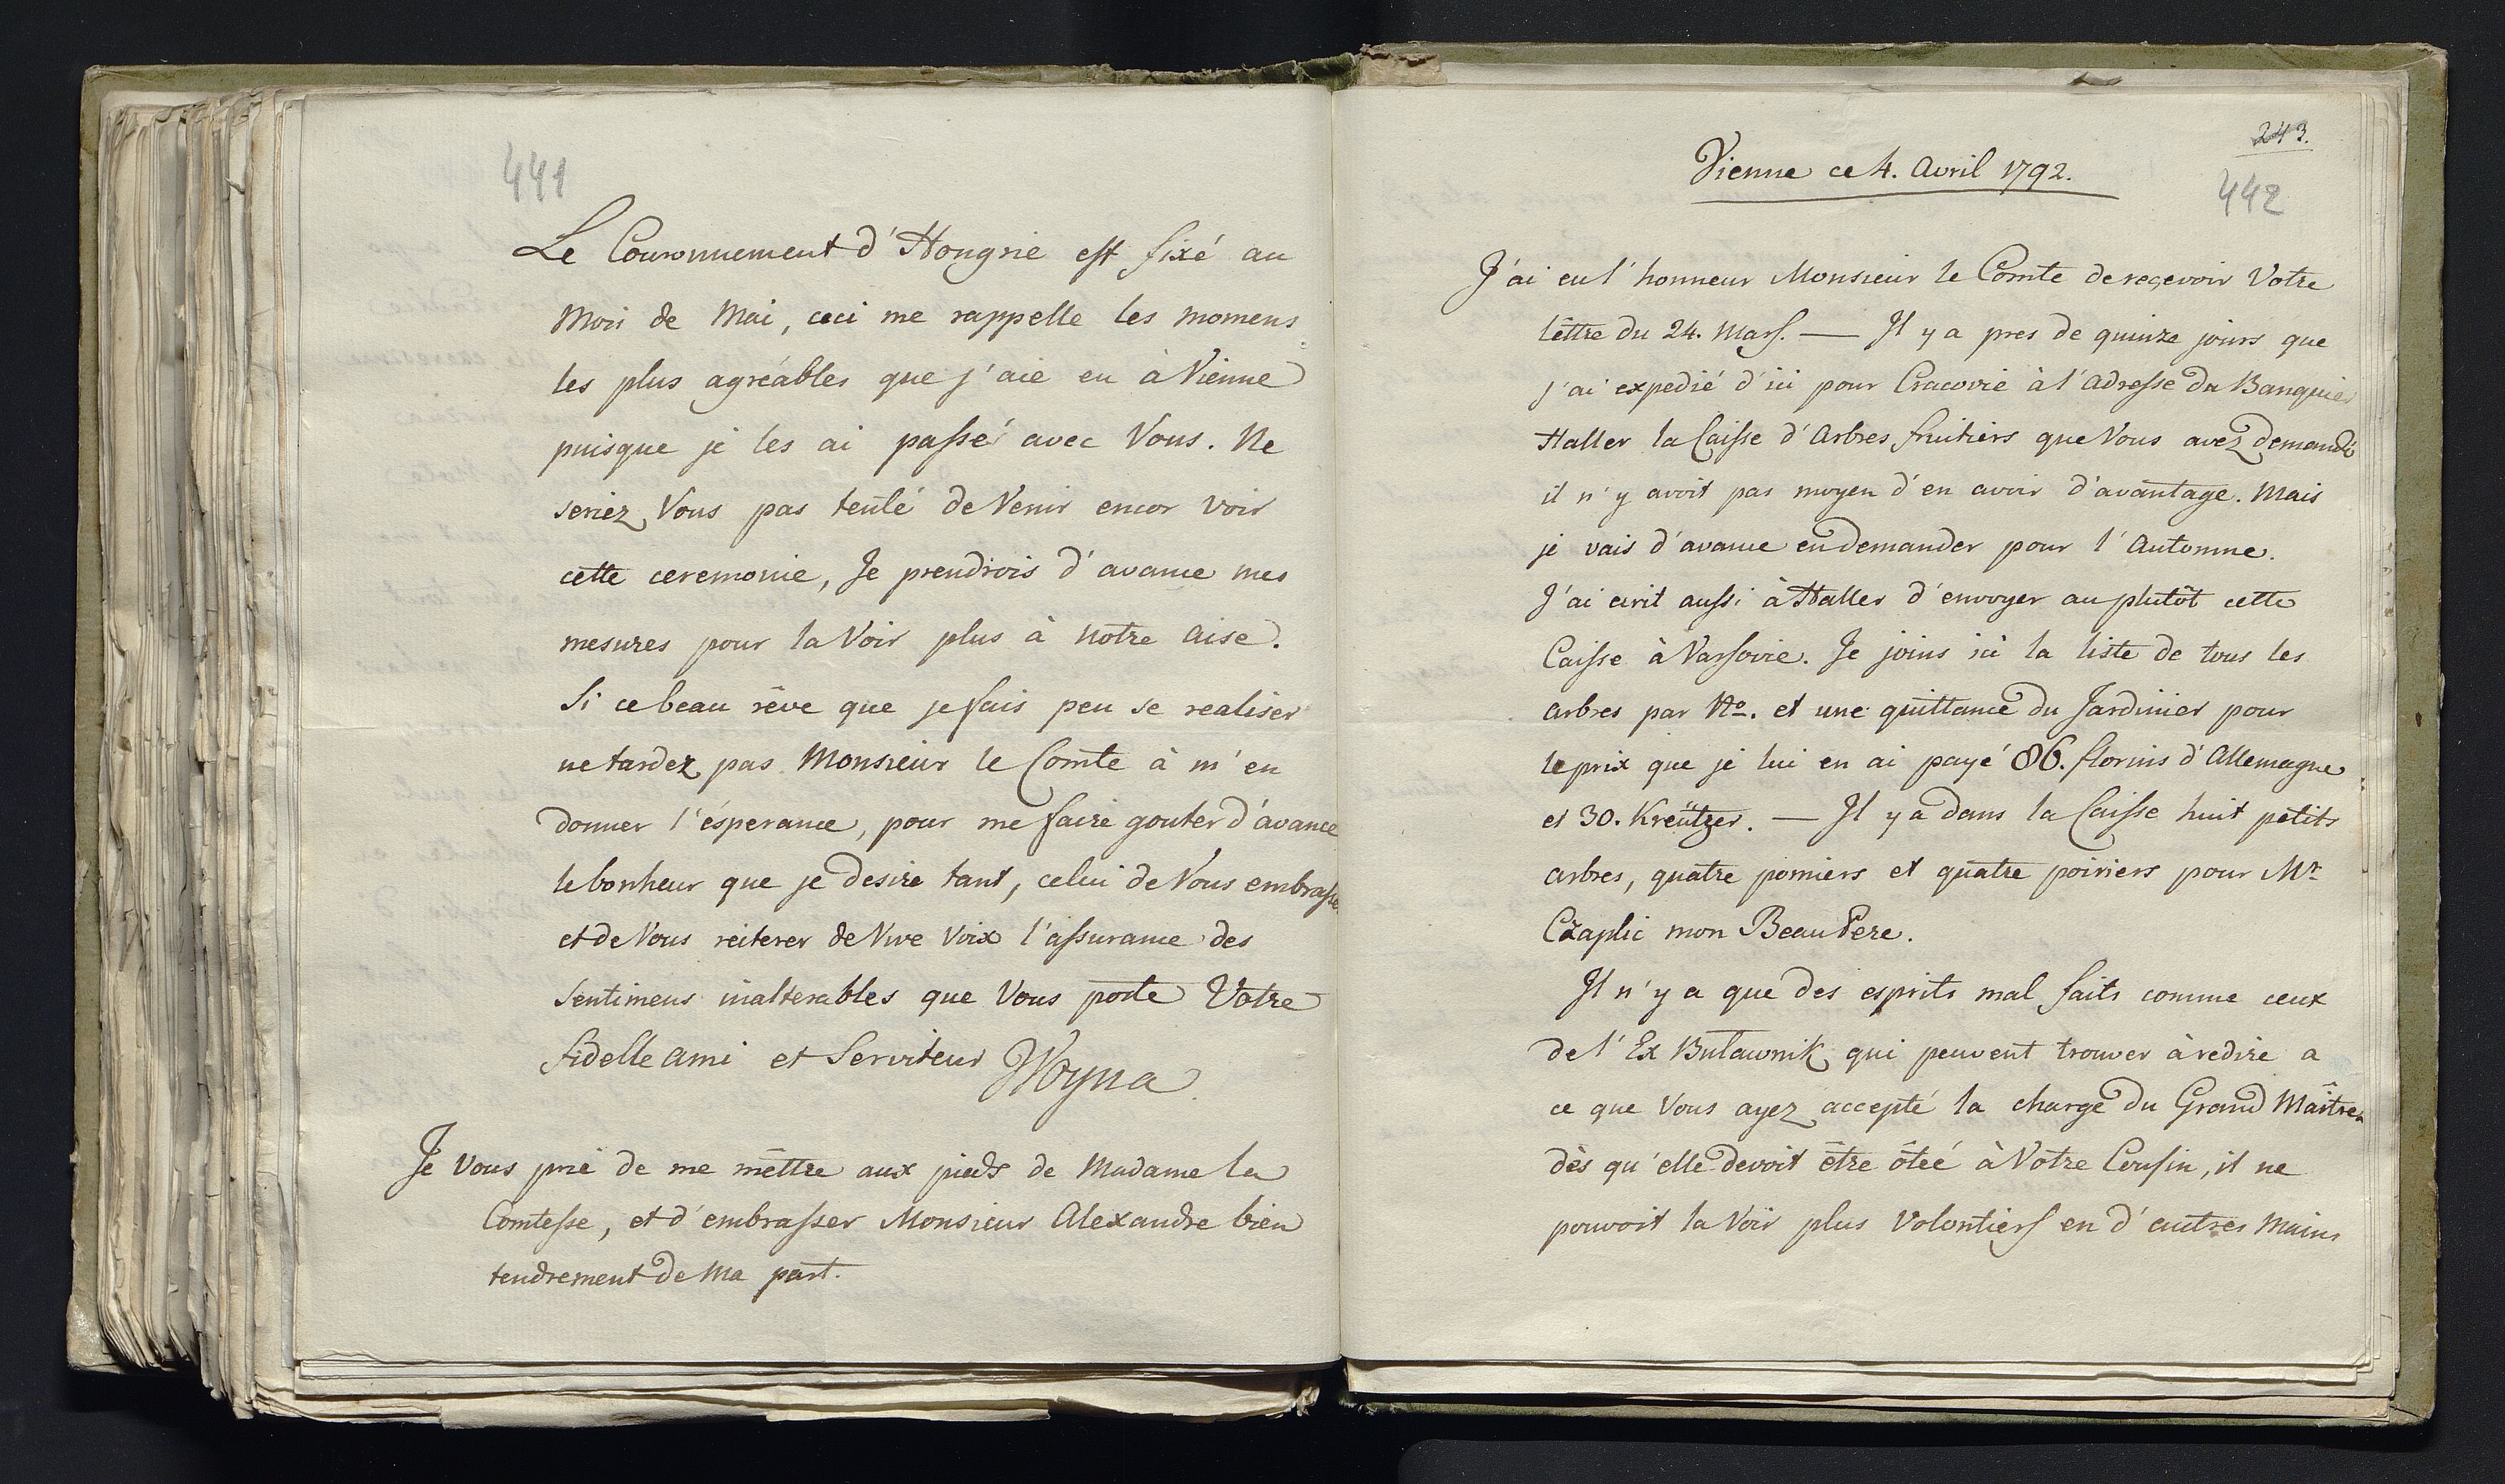 441
Le Couronnement d'Hongrie est fixé au
Mois de Mai, ceci me rappelle les momens
les plus agréables que j'aie eu à Vienne
puisque je les ai passé avec Vous. Ne
seriez Vous pas tenté de Venir encor voir
cette ceremonie, Je prendrois d'avance mes
mesures pour la Voir plus à notre aise.
Si ce beau rêve que je fais peu se realiser
ne tardez pas Monsieur le Comte à m'en
donner l'ésperance, pour me faire gouter d'avance
le bonheur que je desire tant, celui de Vous embrasser
et de Vous reiterer de Vive Voix l'assurance des
Sentimens inalterables que Vous porte Votre
fidelle ami et Serviteur Woyna
Je Vous prie de me mêttre aux pieds de Madame la
Comtesse, et d'embrasser Monsieur Alexandre bien
tendrement de Ma part.
243.
442
Vienne ce 4. Avril 1792.
J'ai eu l'honneur Monsieur le Comte de reçevoir Votre
lêttre du 24. Mars. — Il y a pres de quinze jours que
j'ai expedié d'ici pour Cracovie à l'adresse du Banquier
Haller la Caisse d'Arbres fruitiers que Vous avez demandé
il n'y avoit pas moyen d'en avoir d'avantage. Mais
je vais d'avance en demander pour l'Automne.
J'ai ecrit aussi à Haller d'envoyer au plutôt cette
Caisse à Varsovie. Je joins ici la liste de tous les
arbres par No. et une quittance du Jardinier pour
le prix que je lui en ai payé 86. florins d'Allemagne
et 30. Kreützer. — Il y a dans la Caisse huit petits
arbres, quatre pomiers et quatre poiriers pour Mr
Czaplic mon Beau Pere.
Il n'y a que des esprits mal faits comme ceux
de l'Ex Bulawnik qui peuvent trouver à redire a
ce que Vous ayez accepté la charge du Grand Maître
dès qu'elle devoit être ôteé à Vôtre Cousin, il ne
pouvoit la Voir plus Volontiers en d'autres Mains